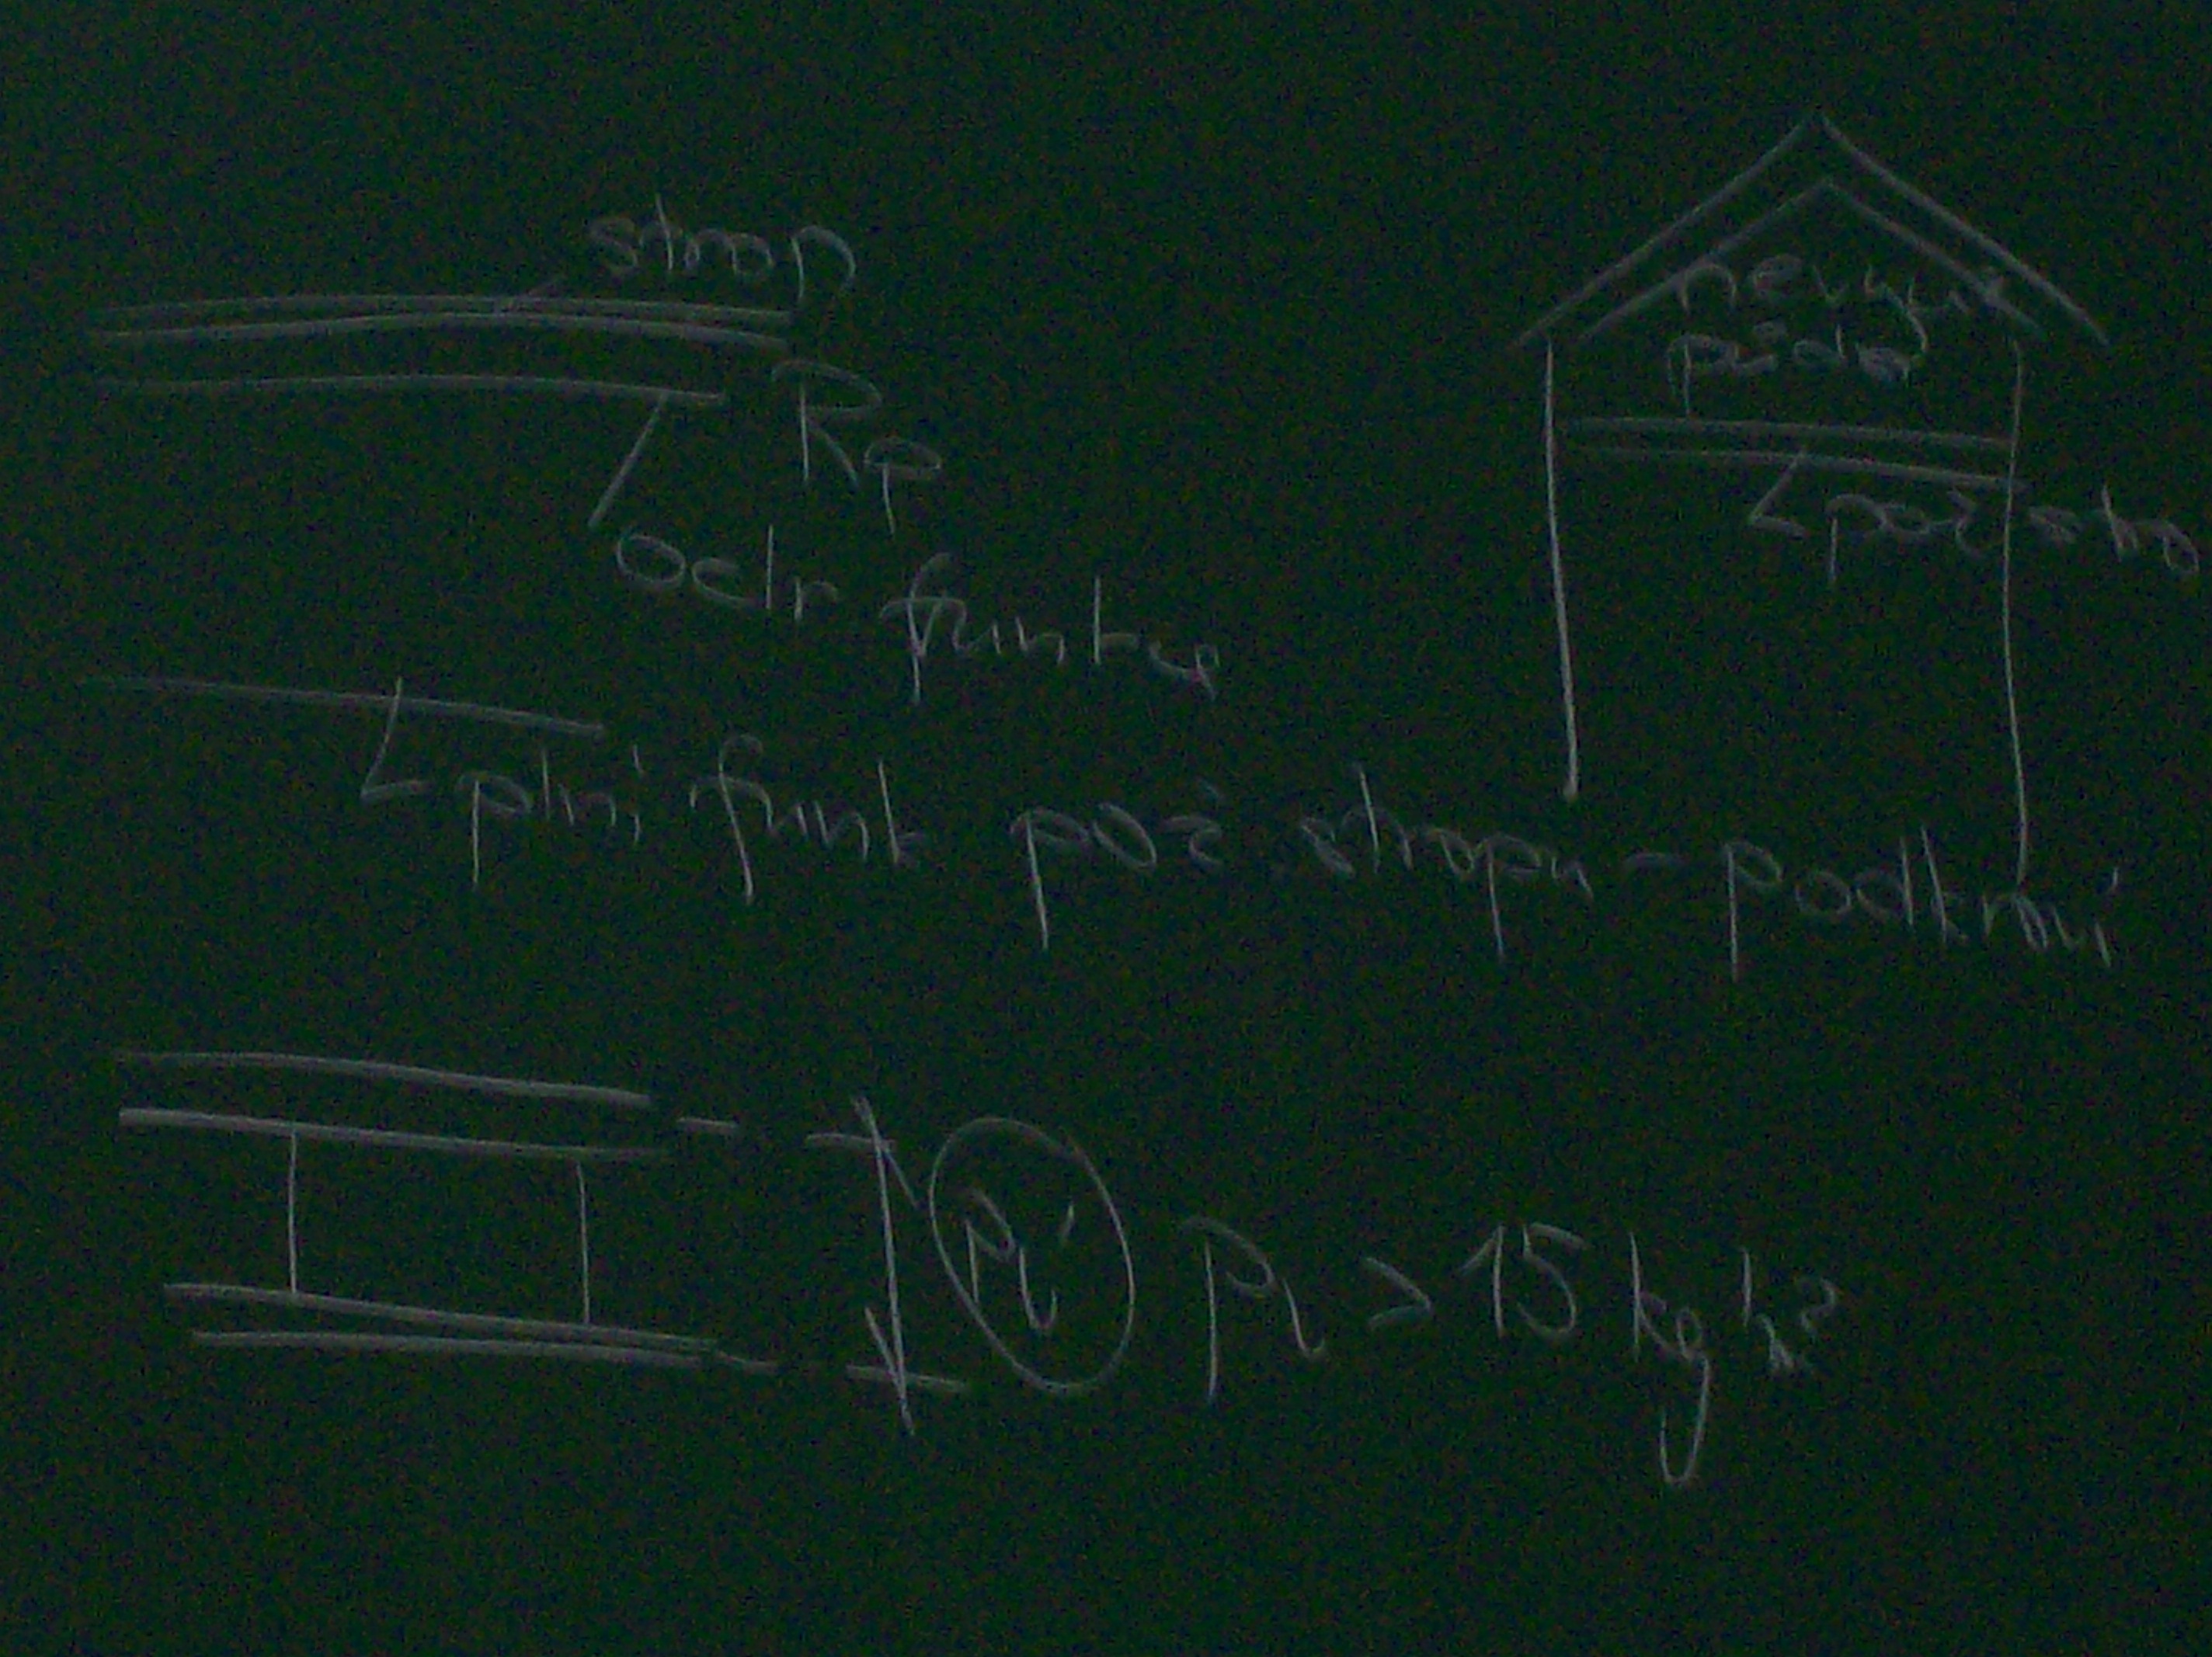 strop
Rp
ochr funkci
plní funk pož stropu - podkroví
nevyuž
půda
pož strop
pí p > 15 kg/m²